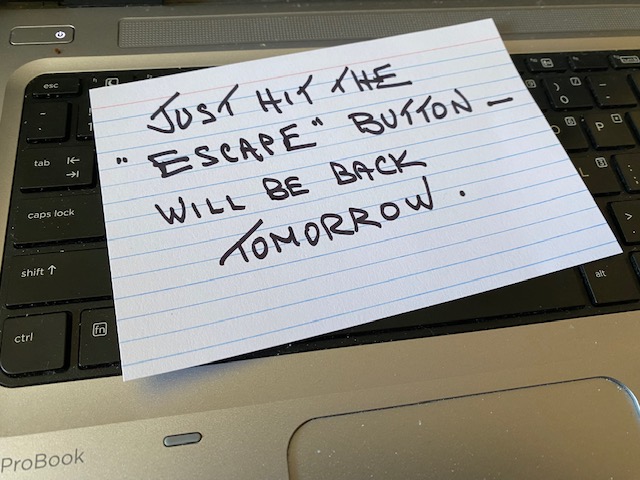 esc
JUST HIT THE
"ESCAPE" BUTTON —
WILL BE BACK
TOMORROW.
tab
caps lock
shift
ctrl
fn
alt
O
P
L
ProBook